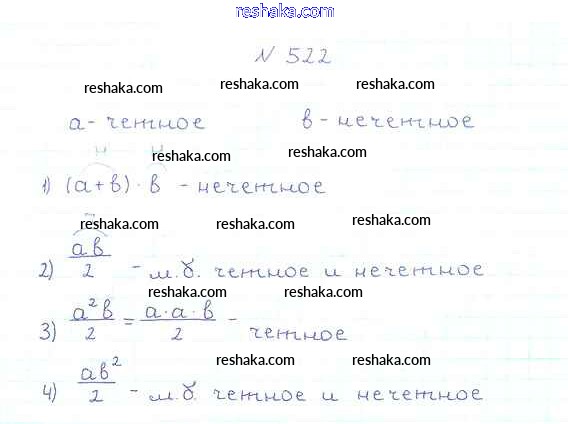 reshaka.com
N 522
reshaka.com reshaka.com reshaka.com
а - четное в - нечетное
reshaka.com reshaka.com
н н
1) (а+в) · в - нечетное
reshaka.com reshaka.com reshaka.com
2) ав/2 - м.б. четное и нечетное
reshaka.com reshaka.com
3) а²в/2 = а·а·в/2 - четное
reshaka.com reshaka.com
4) ав²/2 - м.б. четное и нечетное
reshaka.com reshaka.com reshaka.com